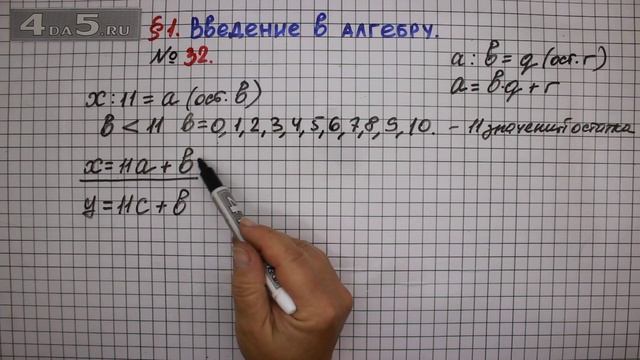 4DA5.RU
§1. Введение в алгебру.
№ 32.
a : b = q (ост. r)
a = b·q + r
x : 11 = a (ост. b)
b < 11 b = 0, 1, 2, 3, 4, 5, 6, 7, 8, 9, 10. – 11 значений остатка
x = 11a + b
y = 11c + b